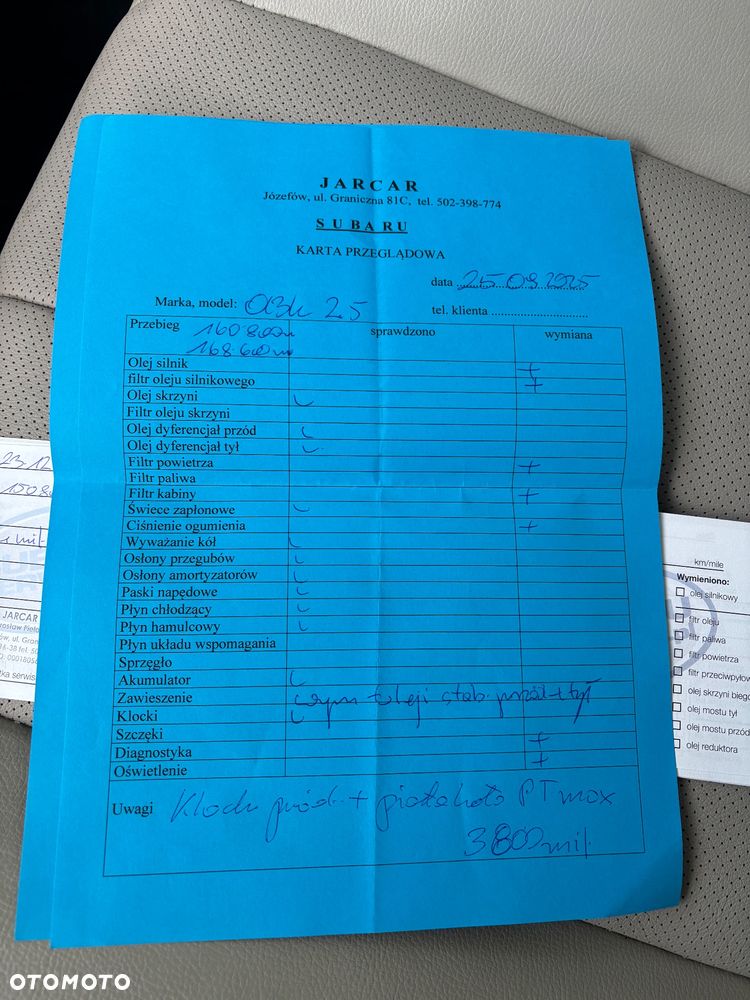 JARCAR
Józefów, ul. Graniczna 81C, tel. 502-398-774
SUBARU
KARTA PRZEGLĄDOWA
data 25.09.2025
Marka, model: OBK 2.5 tel. klienta
Przebieg 160800 sprawdzono wymiana
168600
Olej silnik +
filtr oleju silnikowego +
Olej skrzyni
Filtr oleju skrzyni
Olej dyferencjał przód
Olej dyferencjał tył
Filtr powietrza +
Filtr paliwa
Filtr kabiny +
Świece zapłonowe
Ciśnienie ogumienia +
Wyważanie kół
Osłony przegubów
Osłony amortyzatorów
Paski napędowe
Płyn chłodzący
Płyn hamulcowy
Płyn układu wspomagania
Sprzęgło
Akumulator
Zawieszenie wym tuleji stab. przód + tył
Klocki
Szczęki
Diagnostyka +
Oświetlenie +
Uwagi Klocki przód + piasta koła PT max
3800 mil
23.12
JARCAR
km/mile
Wymieniono:
olej silnikowy
filtr oleju
filtr paliwa
filtr powietrza
filtr przeciwpyłow
olej skrzyni bieg
olej mostu tył
olej mostu przód
olej reduktora
OTOMOTO